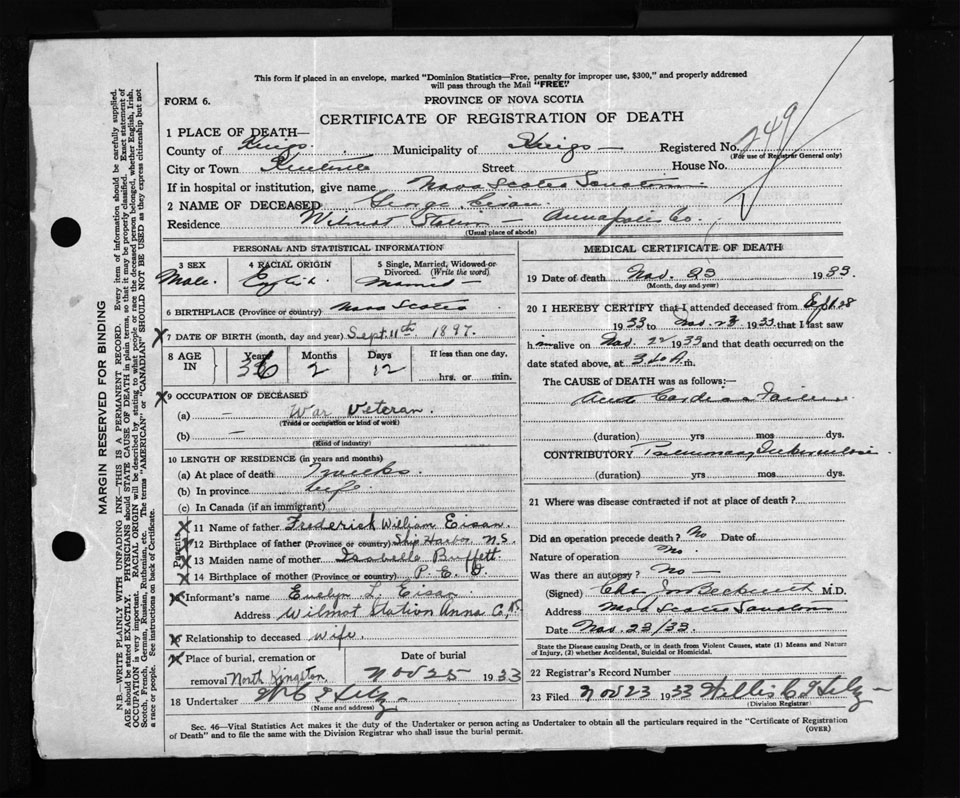 This form if placed in an envelope, marked "Dominion Statistics—Free, penalty for improper use, $300," and properly addressed
will pass through the Mail "FREE"
FORM 6.
PROVINCE OF NOVA SCOTIA
CERTIFICATE OF REGISTRATION OF DEATH
249
1 PLACE OF DEATH—
County of Kings. Municipality of Kings Registered No.
(For use of Registrar General only)
City or Town Kentville Street House No.
If in hospital or institution, give name Nova Scotia Sanatorium
2 NAME OF DECEASED George Eisan.
Residence Wilmot Station Annapolis Co.
(Usual place of abode)
PERSONAL AND STATISTICAL INFORMATION
3 SEX 4 RACIAL ORIGIN 5 Single, Married, Widowed or
Divorced. (Write the word)
Male. English Married
6 BIRTHPLACE (Province or country) Nova Scotia
7 DATE OF BIRTH (month, day and year) Sept. 11th 1897.
8 AGE IN Years Months Days If less than one day,
36 2 12 hrs. or min.
9 OCCUPATION OF DECEASED
(a) — War Veteran.
(Trade or occupation or kind of work)
(b) —
(Kind of industry)
10 LENGTH OF RESIDENCE (in years and months)
(a) At place of death weeks
(b) In province Life
(c) In Canada (if an immigrant)
Parents
11 Name of father Frederick William Eisan.
12 Birthplace of father (Province or country) Ship Harbor N.S.
13 Maiden name of mother Isabelle Buffett
14 Birthplace of mother (Province or country) P. E. I.
15 Informant's name Evelyn L. Eisan
Address Wilmot Station Anna Co, N.S.
16 Relationship to deceased wife.
17 Place of burial, cremation or Date of burial
removal North Kingston Nov 25 1933
18 Undertaker
(Name and address)
MEDICAL CERTIFICATE OF DEATH
19 Date of death Nov. 23 1933.
(Month, day and year)
20 I HEREBY CERTIFY that I attended deceased from Sept 28
1933 to Nov. 23 1933 that I last saw
him alive on Nov. 22 1933 and that death occurred on the
date stated above, at A.m.
The CAUSE of DEATH was as follows:—
Acute Cardiac Failure
(duration) yrs mos dys.
CONTRIBUTORY Pulmonary Tuberculosis
(duration) yrs mos dys.
21 Where was disease contracted if not at place of death?
Did an operation precede death? No Date of
Nature of operation No.
Was there an autopsy? No —
(Signed) Beckwith M.D.
Address Nova Scotia Sanatorium
Date Nov. 23/33.
State the Disease causing Death, or in death from Violent Causes, state (1) Means and Nature
of Injury, (2) whether Accidental, Suicidal or Homicidal.
22 Registrar's Record Number
23 Filed Nov 23 1933 Willis
(Division Registrar)
Sec. 46—Vital Statistics Act makes it the duty of the Undertaker or person acting as Undertaker to obtain all the particulars required in the "Certificate of Registration
of Death" and to file the same with the Division Registrar who shall issue the burial permit.
(OVER)
MARGIN RESERVED FOR BINDING
N.B.—WRITE PLAINLY WITH UNFADING INK—THIS IS A PERMANENT RECORD. Every item of information should be carefully supplied.
AGE should be stated EXACTLY. PHYSICIANS should STATE CAUSE OF DEATH in plain terms, so that it may be properly classified. Exact statement of
OCCUPATION is very important. RACIAL ORIGIN will be described by stating to what people or race the deceased person belonged, whether English, Irish,
Scotch, French, German, Russian, Ruthenian, etc. The terms "AMERICAN" or "CANADIAN" SHOULD NOT BE USED as they express citizenship but not
a race or people. See instructions on back of Certificate.